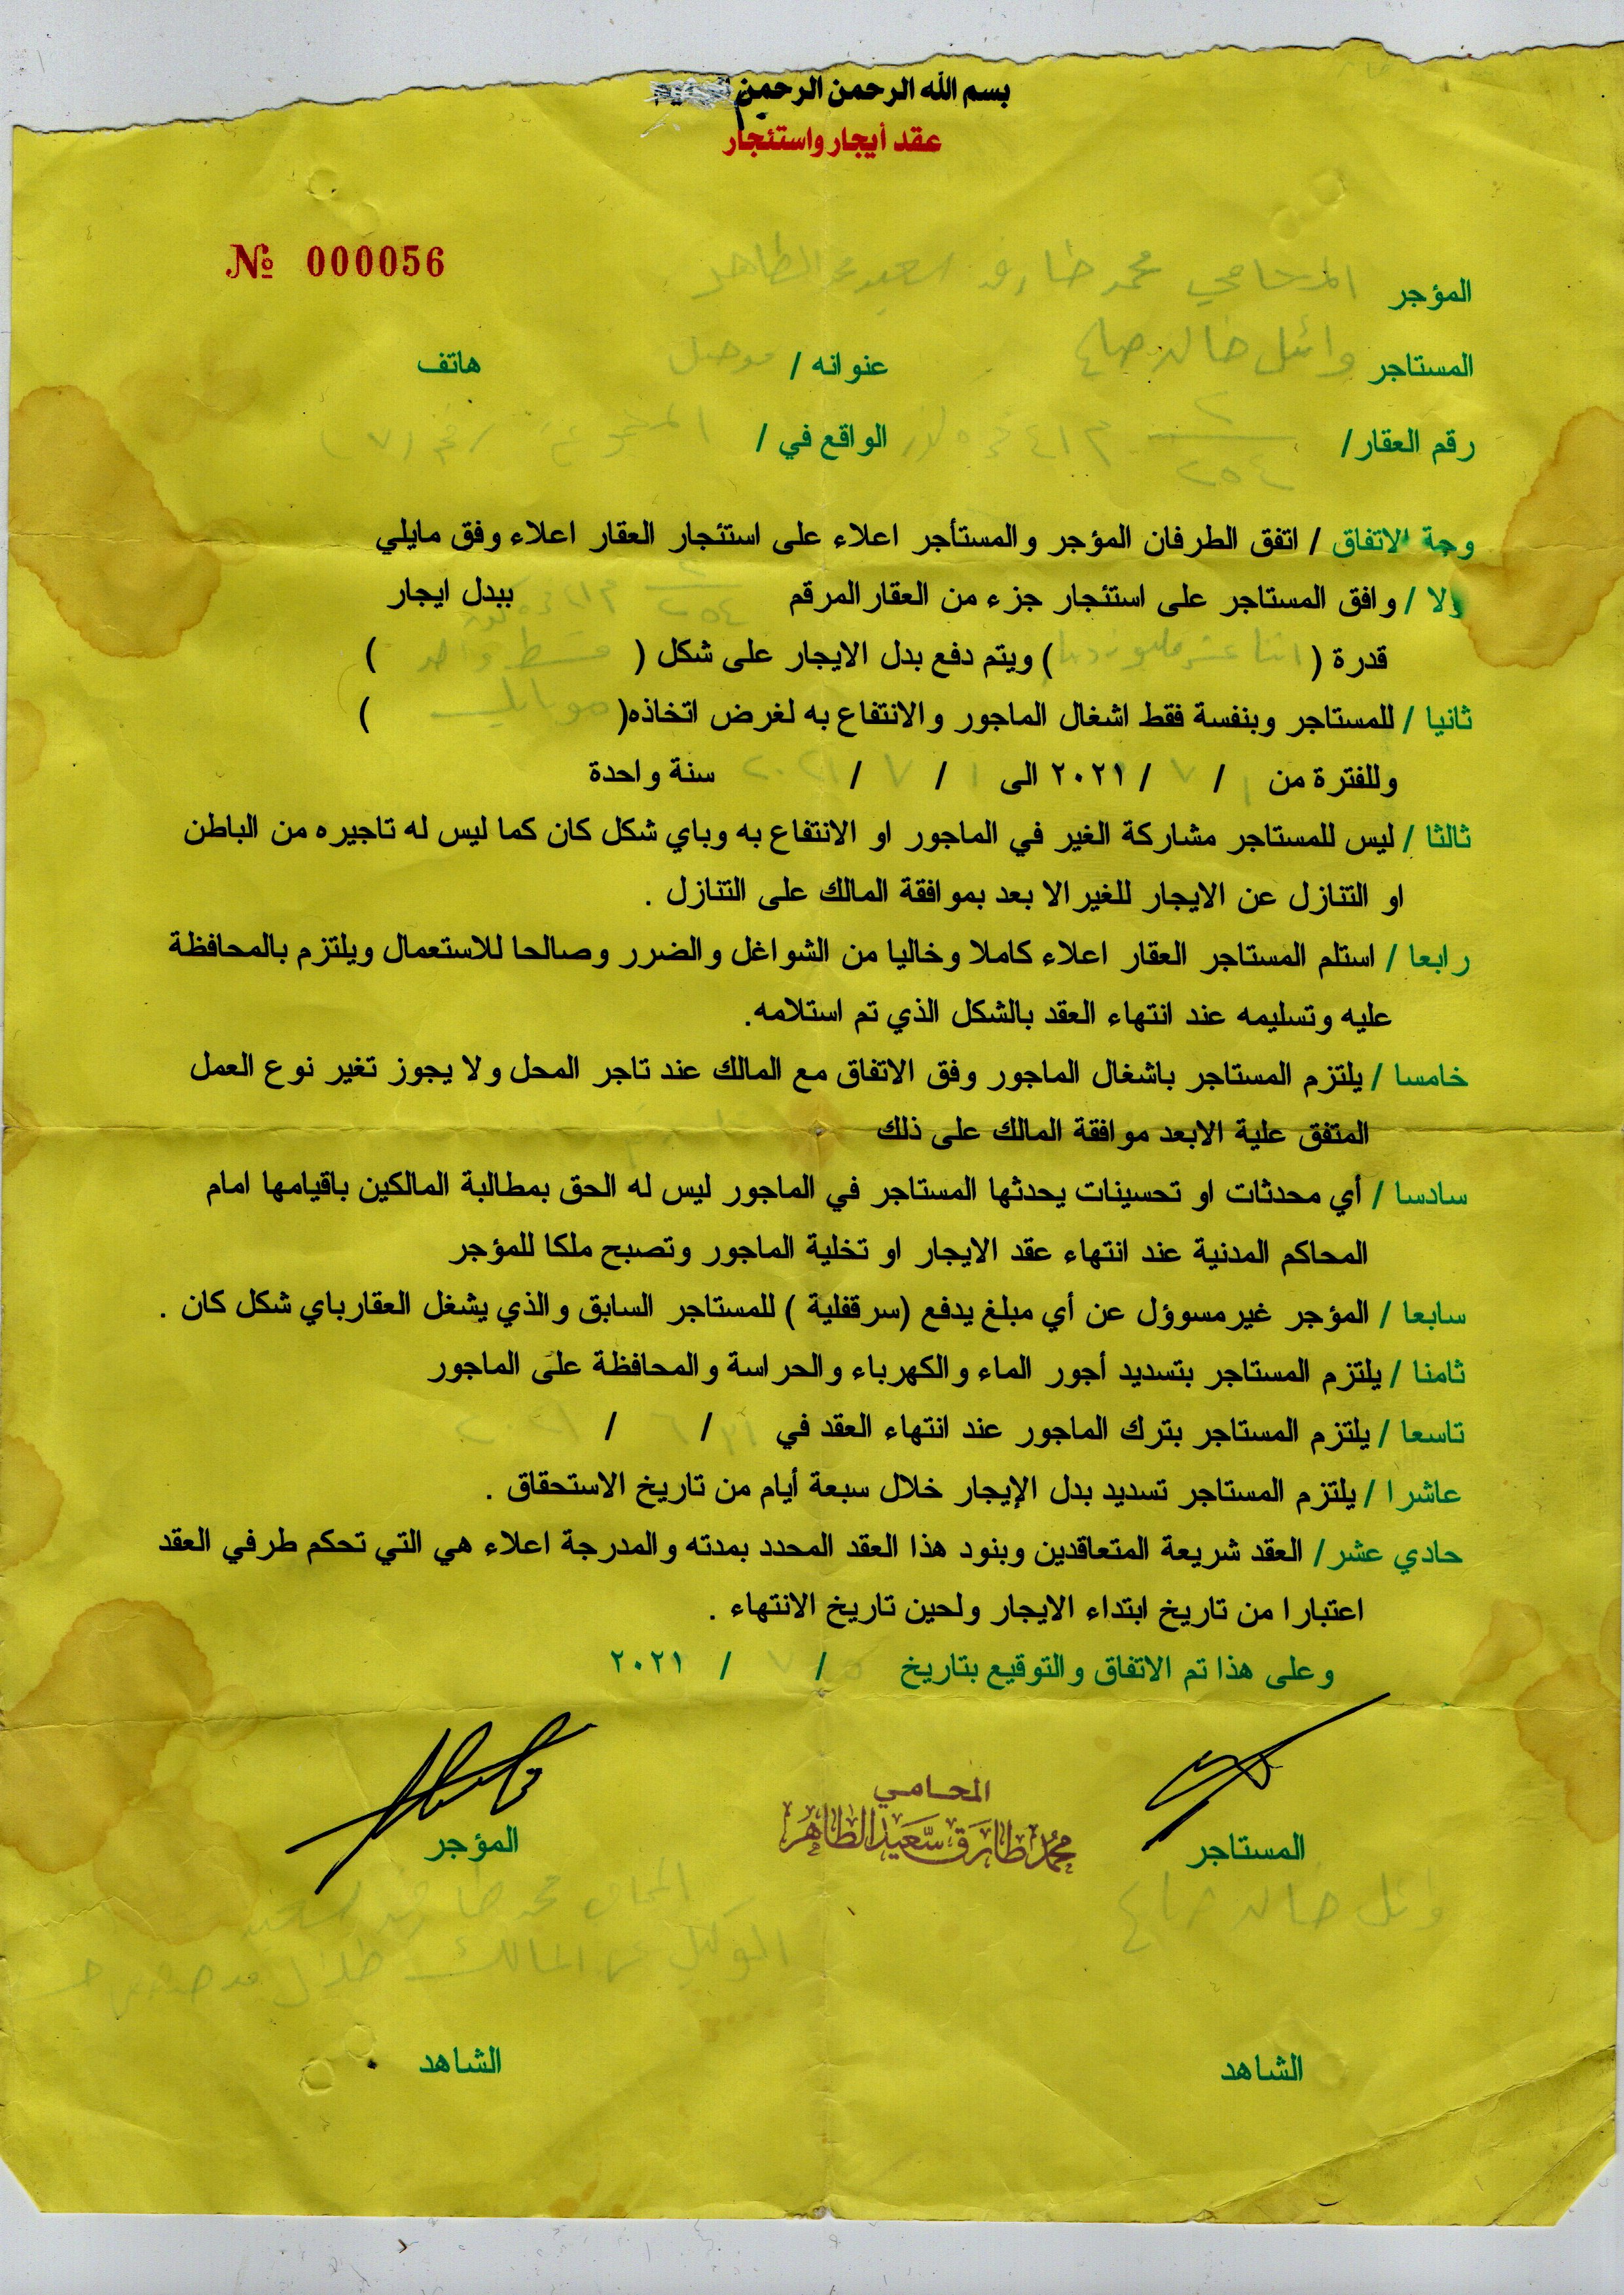 بسم الله الرحمن الرحمن
عقد أيجار واستئجار
№ 000056
المؤجر المحامي محمد طارق سعيد الطاهر
المستاجر وائل خالد صالح عنوانه / موصل هاتف
رقم العقار / ٢ / ٢٥٤ الواقع في / رقم (٧)
وجة الاتفاق / اتفق الطرفان المؤجر والمستأجر اعلاء على استئجار العقار اعلاء وفق مايلي
ولا / وافق المستاجر على استئجار جزء من العقار المرقم ٢ / ٢٥٤ ببدل ايجار
قدرة ( اثنا عشر مليون دينار ) ويتم دفع بدل الايجار على شكل ( قسط واحد )
ثانيا / للمستاجر وبنفسة فقط اشغال الماجور والانتفاع به لغرض اتخاذه( موبايل )
وللفترة من ١ / ٧ / ٢٠٢١ الى ١ / ٧ / سنة واحدة
ثالثا / ليس للمستاجر مشاركة الغير في الماجور او الانتفاع به وباي شكل كان كما ليس له تاجيره من الباطن
او التنازل عن الايجار للغير الا بعد بموافقة المالك على التنازل .
رابعا / استلم المستاجر العقار اعلاء كاملا وخاليا من الشواغل والضرر وصالحا للاستعمال ويلتزم بالمحافظة
عليه وتسليمه عند انتهاء العقد بالشكل الذي تم استلامه.
خامسا / يلتزم المستاجر باشغال الماجور وفق الاتفاق مع المالك عند تاجر المحل ولا يجوز تغير نوع العمل
المتفق علية الابعد موافقة المالك على ذلك
سادسا / أي محدثات او تحسينات يحدثها المستاجر في الماجور ليس له الحق بمطالبة المالكين باقيامها امام
المحاكم المدنية عند انتهاء عقد الايجار او تخلية الماجور وتصبح ملكا للمؤجر
سابعا / المؤجر غير مسوؤل عن أي مبلغ يدفع (سرقفلية ) للمستاجر السابق والذي يشغل العقار باي شكل كان .
ثامنا / يلتزم المستاجر بتسديد أجور الماء والكهرباء والحراسة والمحافظة على الماجور
تاسعا / يلتزم المستاجر بترك الماجور عند انتهاء العقد في / ٦ /
عاشرا / يلتزم المستاجر تسديد بدل الإيجار خلال سبعة أيام من تاريخ الاستحقاق .
حادي عشر / العقد شريعة المتعاقدين وبنود هذا العقد المحدد بمدته والمدرجة اعلاء هي التي تحكم طرفي العقد
اعتبارا من تاريخ ابتداء الايجار ولحين تاريخ الانتهاء .
وعلى هذا تم الاتفاق والتوقيع بتاريخ / ٧ / ٢٠٢١
المحامي
محمد طارق سعيد الطاهر
المستاجر المؤجر
وائل خالد صالح المحامي محمد طارق سعيد
الوكيل عن المالك طلال
الشاهد الشاهد